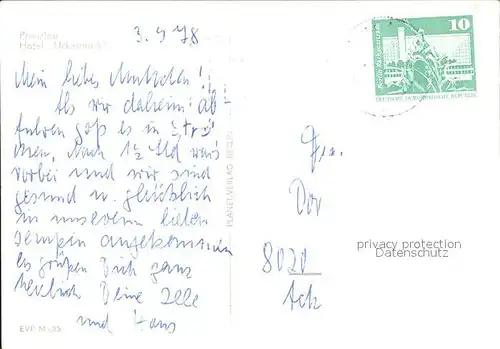 Prenzlau
Hotel "Uckermark"
3. 9 78
Mein liebes Muttchen!
Als wir daheim ab-
fuhren goß es in Strö-
men. Nach 1½ Std war's
vorbei und wir sind
gesund u. glücklich
in unserem lieben
Templin angekommen
Es grüßen Dich ganz
herzlich Deine Ille
und Hans
EVP M -,25
PLANET-VERLAG BERLIN
10
DEUTSCHE DEMOKRATISCHE REPUBLIK
Fra.
Dor
8020
Ack
privacy protection
Datenschutz